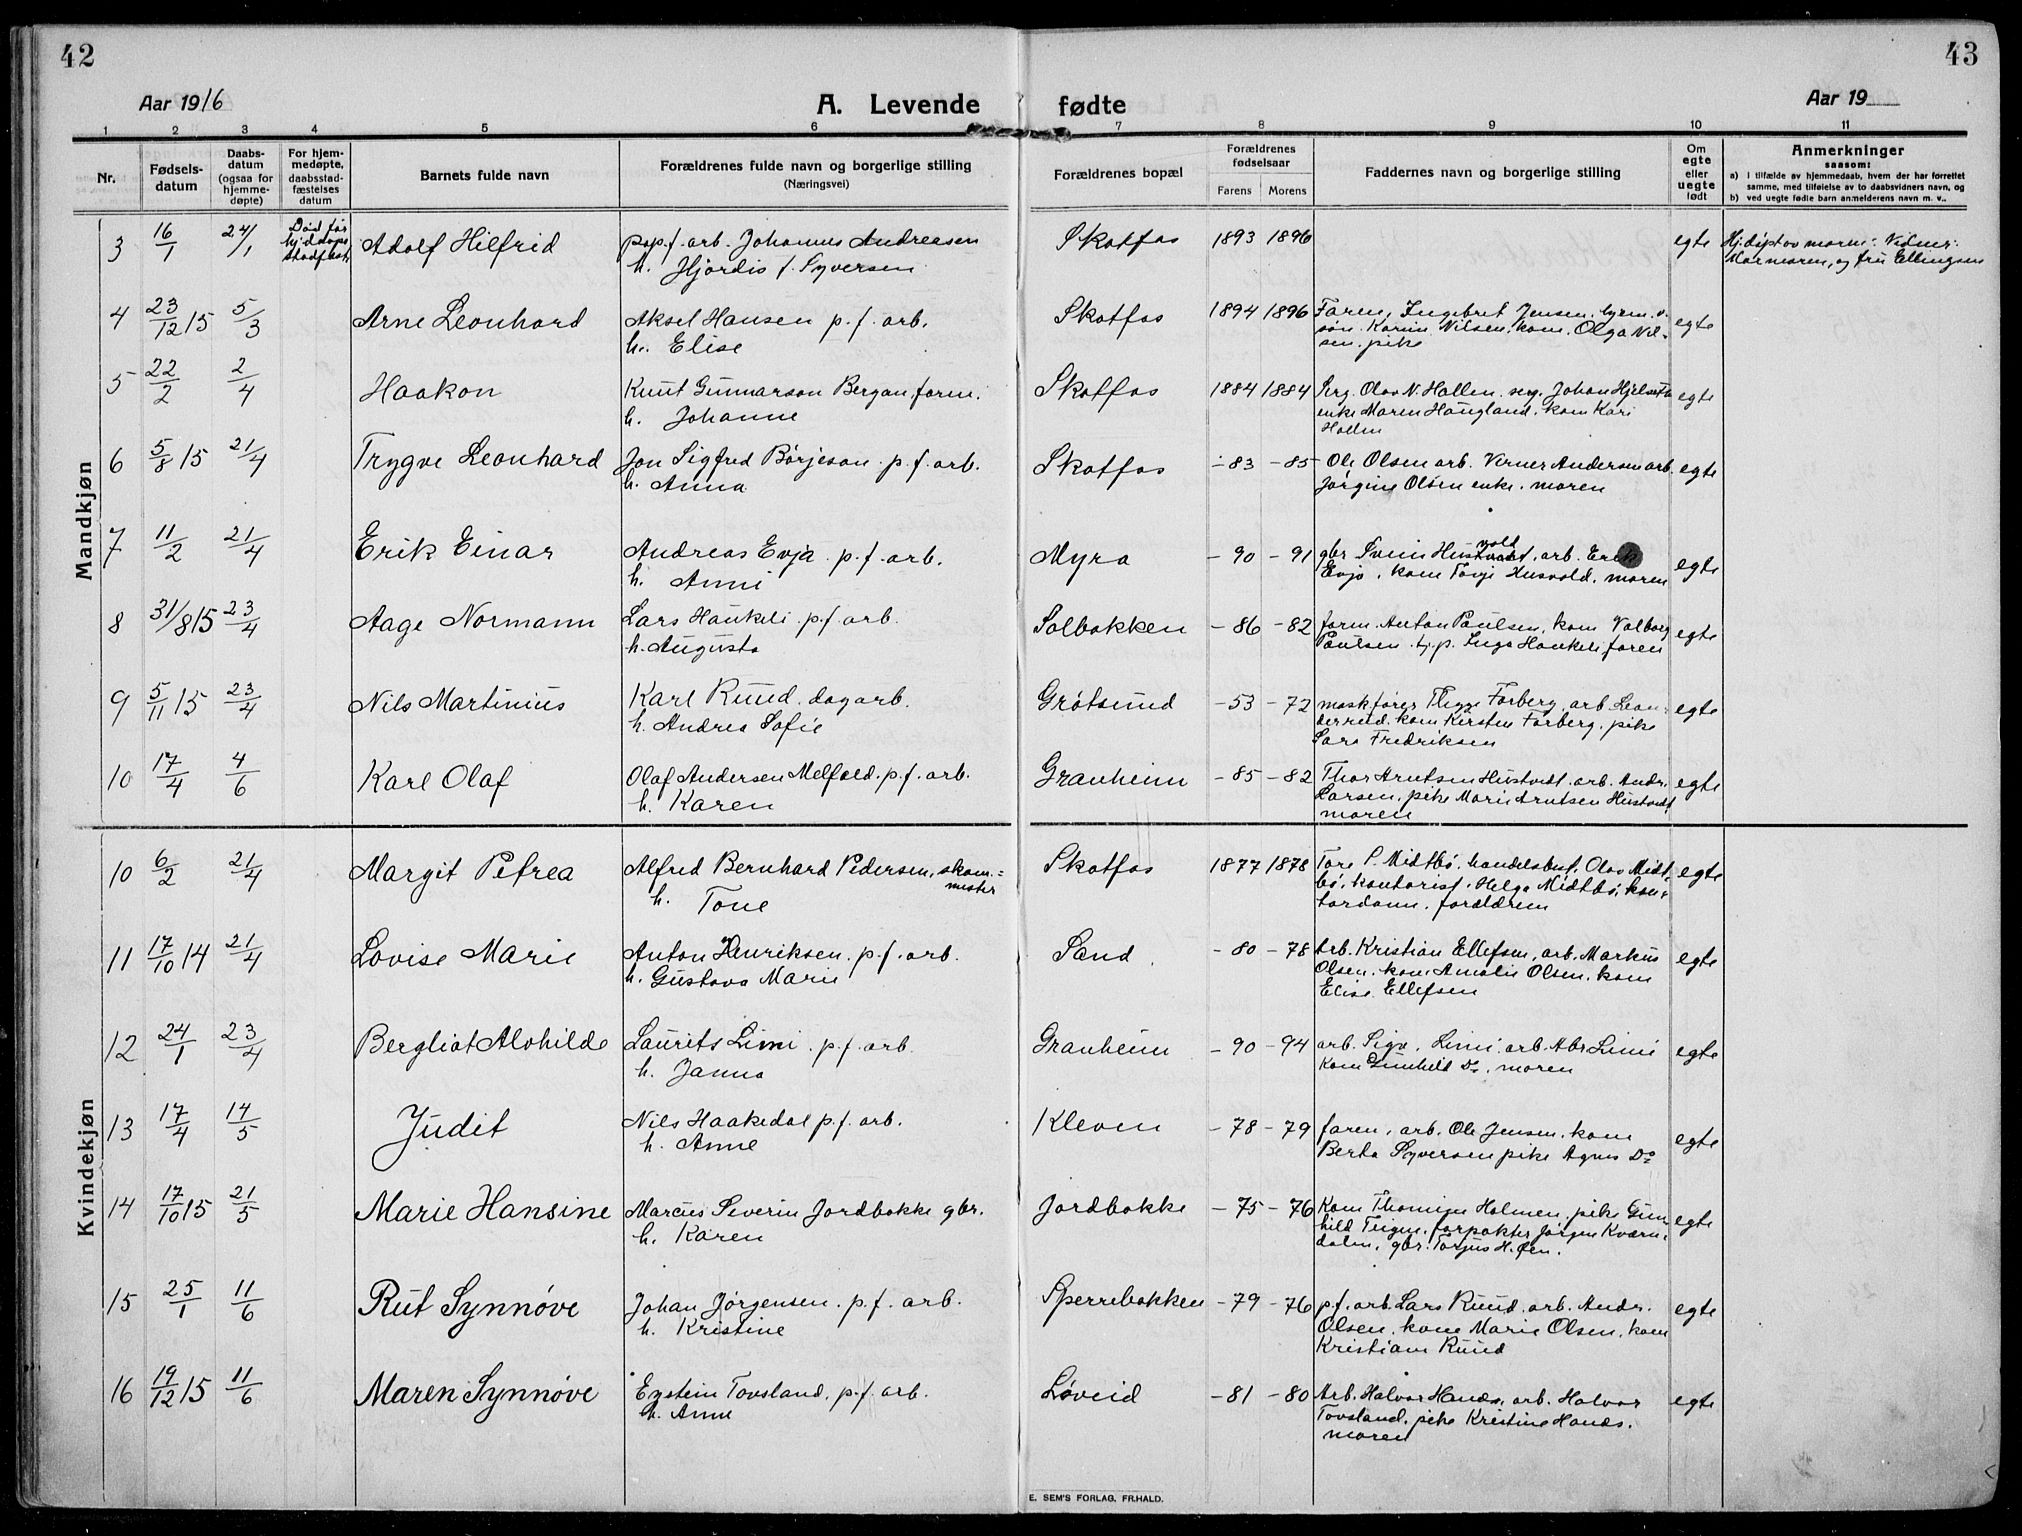 42
43
Aar 1916
A. Levende fødte
Aar 19
1 2 3 4 5 6 7 8 9 10 11
Nr.
Fødsels-
datum
Daabs-
datum
(ogsaa for
hjemme-
døpte)
For hjem-
medøpte,
daabsstad-
fæstelses
datum
Barnets fulde navn
Forældrenes fulde navn og borgerlige stilling
(Næringsvei)
Forældrenes bopæl
Forældrenes
fødselsaar
Farens Morens
Faddernes navn og borgerlige stilling
Om
egte
eller
uegte
født
Anmerkninger
saasom:
a) I tilfælde av hjemmedaab, hvem der har forrettet
samme, med tilføielse av to daabsvidners navn, og
b) ved uegte fødte barn anmelderens navn m. v..
Mandkjøn
3 16/1 24/1 Død før Adolf Hilfrid pap.f. arb. Johannes Andreasen Skotfos 1893 1896 egte Hj.døpt av moren. Vidner:
hj.daaps h. Hjørdis f. Syversen Mormoren, og fru Ellingsen
stadfest.
4 23/12 15 5/3 Arne Leonhard Aksel Hansen p.f. arb. Skotfos 1894 1896 Faren, Ingebret Jensen,
h. Elise søn. Karine Nilsen, kone, Olga Nil- egte
sen, pike
5 22/2 2/4 Haakon Knut Gunnarson Bergan, form. Skotfos 1884 1884 Serg. Olav N. Hollen, serg. Johan
h. Johanne enke Maren Haugland, kone Kari egte
Hollen
6 5/8 15 21/4 Trygve Leonhard Jon Sigfred Börjeson p.f. arb. Skotfos -83 -85 Ole Olsen arb. Verner Andersen arb. egte
h. Anna Jørgine Olsen enke, moren
7 11/2 21/4 Erik Einar Andreas Evja p.f. arb. Myra -90 -91 gbr Svein Husvold, arb. Erik
h. Anni Evjo, kone Torje Husvold, moren egte
8 31/8 15 23/4 Aage Normann Lars Haukeli p.f. arb. Solbakken -86 -82 form. Anton Paulsen, kone Valborg
h. Augusta Paulsen, tj.p. Inga Haukeli, faren egte
9 5/11 15 23/4 Nils Martinius Karl Ruud, dagarb. Grøtsund -53 -72 maskfører Forberg, arb. Lean- egte
h. Andrea Sofie derrud, kone Kirsten Forberg, pike
Sara Fredriksen
10 17/4 4/6 Karl Olaf Olaf Andersen Melfald. p.f. arb. Granheim -85 -82 Thor Arntsen Hustvedt, arb. Andr.
h. Karen Larsen, pike Marie Arntsen Hustvedt egte
moren
Kvindekjøn
10 6/2 21/4 Margit Petrea Alfred Bernhard Pedersen, skom.= Skotfos 1877 1878 Tore S. Midtbö, handelsbest, Olav Midt- egte
mester bö, kontorist, Helga Midtbö, kon-
h. Tone tordame, forældrene
11 17/10 14 21/4 Lovise Marie Anton Henriksen. p.f. arb. Sand -80 -78 Arb. Kristian Ellefsen, arb. Markus
h. Gustava Marie Olsen, kone Amalie Olsen, kone egte
Elise Ellefsen
12 24/1 23/4 Bergliot Alvhilde Laurits Limi. p.f. arb. Granheim -90 -94 arb. Sigv. Limi, arb. Abr. Limi egte
h. Janna Kone Gunhild Do, moren
13 17/4 14/5 Judit Nils Haakedal p.f. arb. Kleven -78 -79 faren, arb. Ole Jensen, kone
h. Anne Berta Syversen pike Agnes Do egte
14 17/10 15 21/5 Marie Hansine Marcus Severin Jordbakke gbr. Jordbakke -75 -76 Kone Thomine Holmen, pike Gun-
h. Karen hild Teigen, forpakter Jørgen Kværn- egte
dalen, gbr. Torjus H. Øen.
15 25/1 11/6 Rut Synnøve Johan Jørgensen. p.f. arb. Sperrebakken -79 -76 p.f. arb. Lars Ruud, arb. Andr.
h. Kristine Olsen, kone Marie Olsen, kone egte
Kristiane Ruud
16 19/12 15 11/6 Maren Synnøve Eystein Tovsland, p.f. arb. Løveid -81 -80 Arb. Halvor Hanös, arb. Halvor egte
h. Anne Tovsland, pike Kristine Hanös,
moren
E. SEM'S FORLAG, FR.HALD.